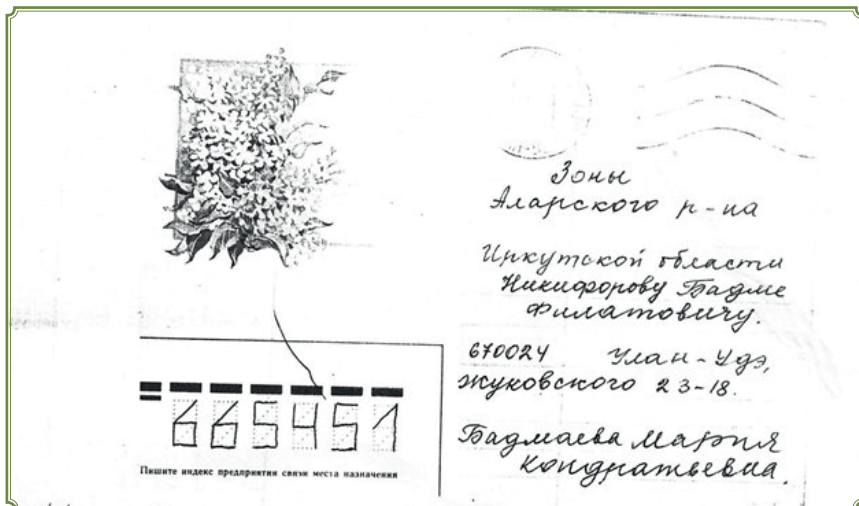 Зоны
Аларского р-на
Иркутской области
Никифорову Бадме
Филатовичу.
670024 Улан-Удэ,
Жуковского 23-18.
Бадмаева Мария
Кондратьевна.
665451
Пишите индекс предприятия связи места назначения